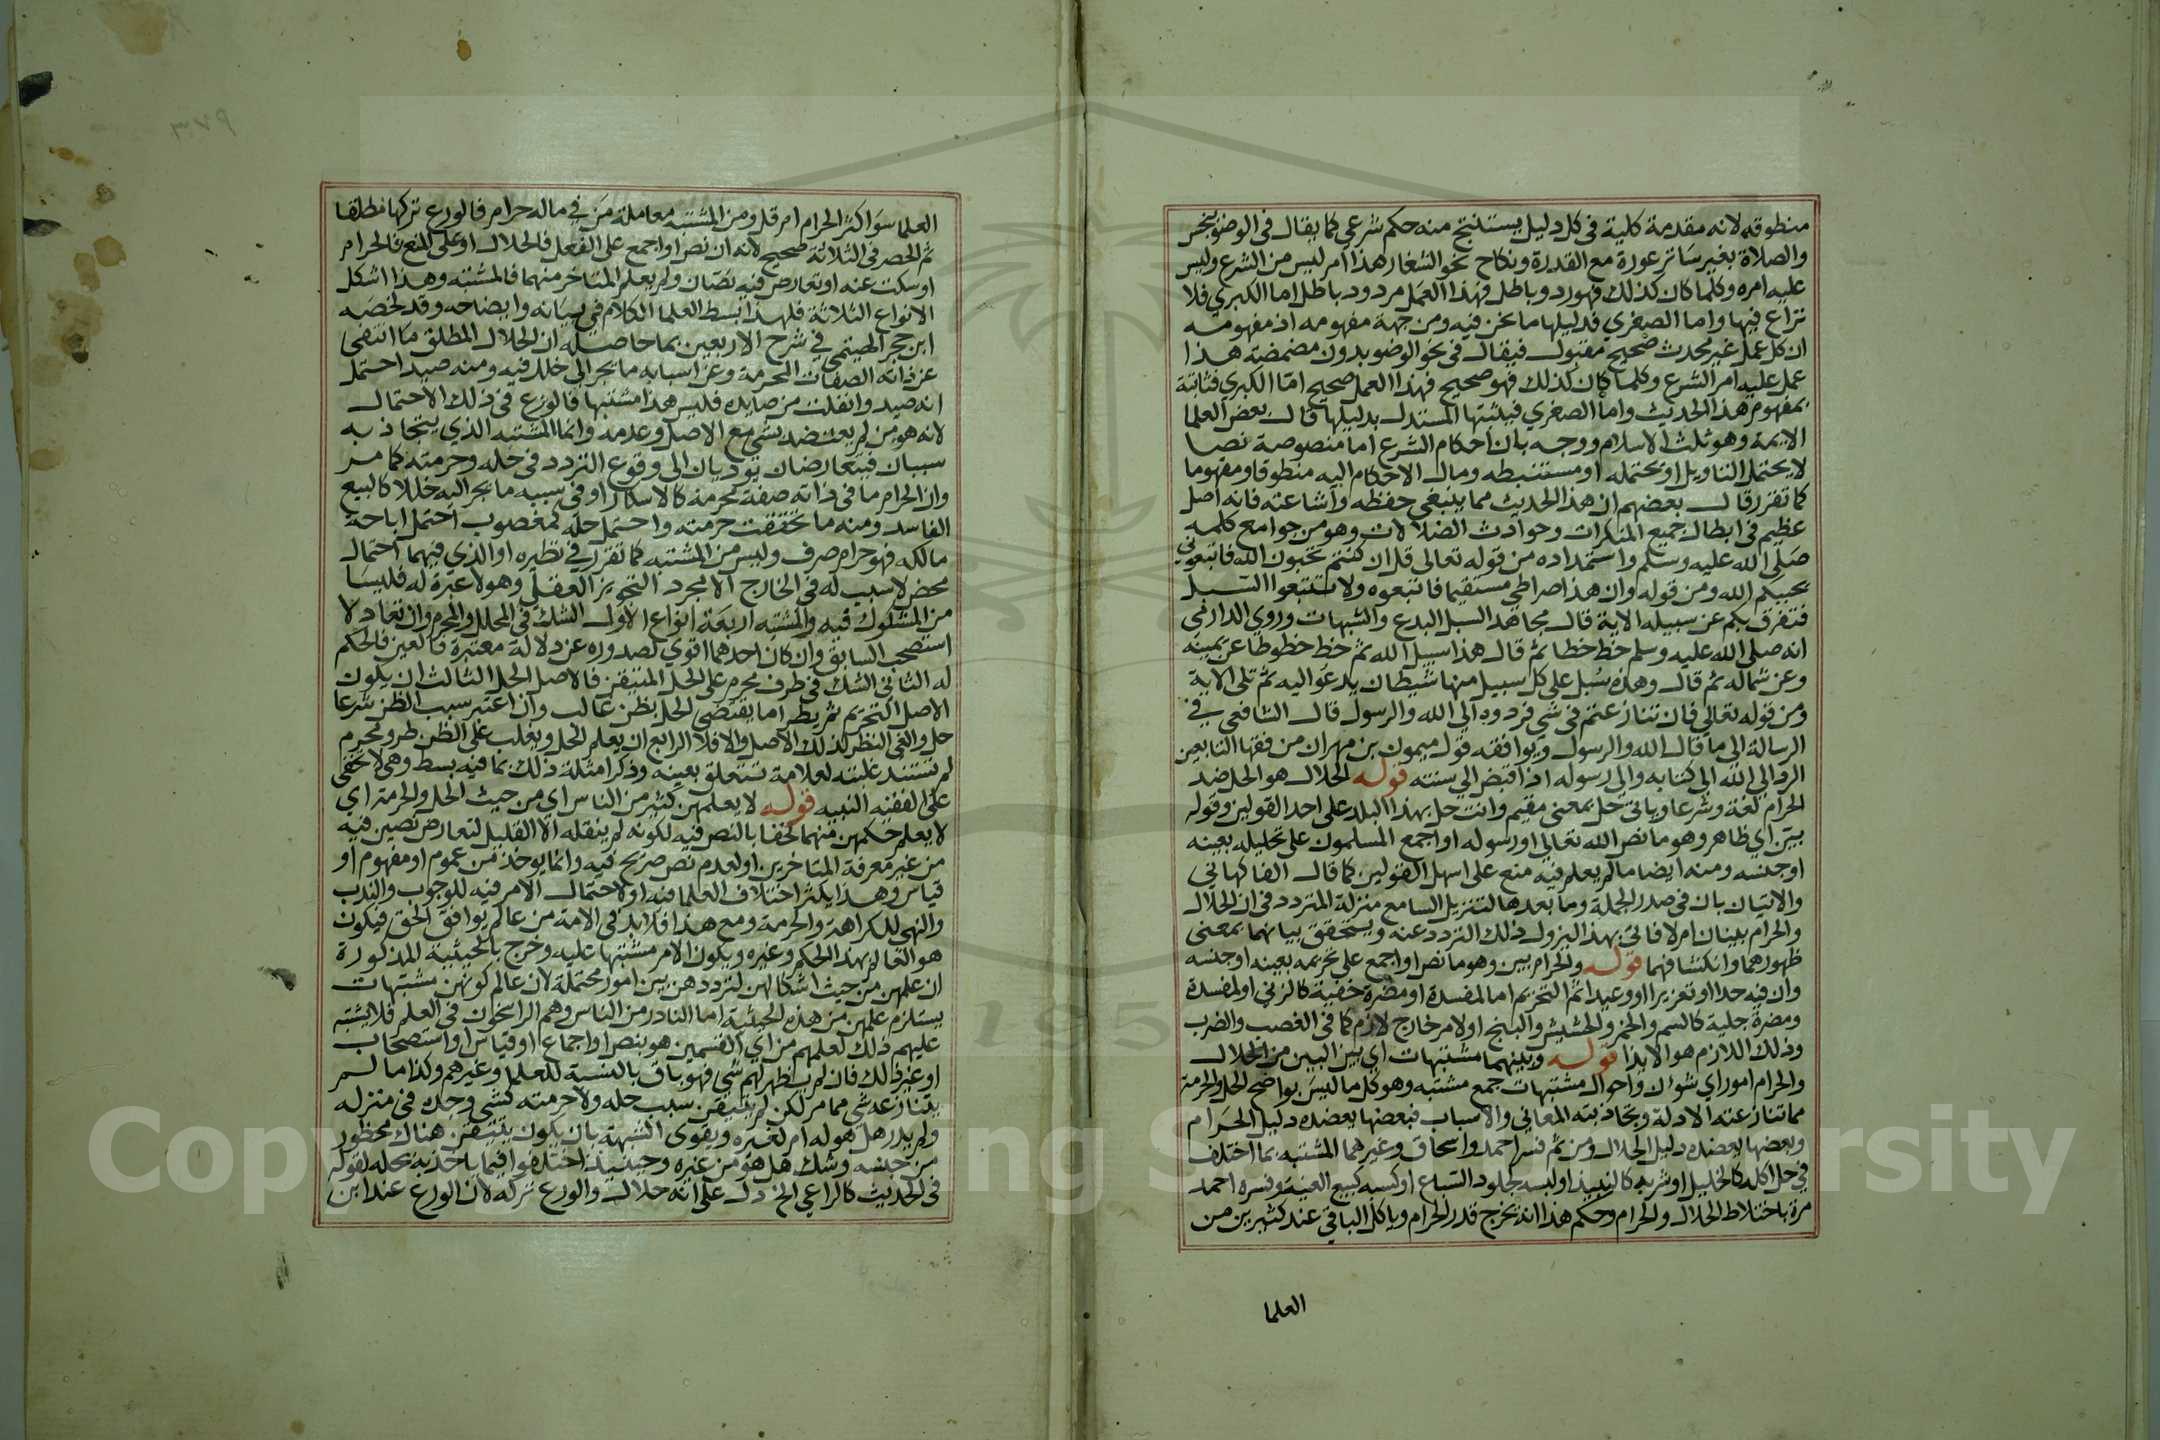 منطوقه لانه مقدمة كلية في كل دليل يستنتج منه حكم شرعي كما يقال في الوضو بنجس
والصلاة بغير ساتر عورة مع القدرة ونكاح نحو الشغار هذا امر ليس من الشرع وليس
عليه امره وكلما كان كذلك فهو رد وباطل فهذا العمل مردود باطل اما الكبري فلا
نزاع فيها واما الصغري فدليلها ما نحن فيه ومن جهة مفهومه اذ مفهومه
ان كل عمل غير محدث صحيح مقبول فيقال في نحو الوضو بدون مضمضة هذا
عمل عليه امر الشرع وكلما كان كذلك فهو صحيح فهذا العمل صحيح اما الكبري فثابتة
بمفهوم هذا الحديث واما الصغري فيثبتها المستدل بدليلها قال بعض العلما
الايمة وهو ثلث الاسلام ووجه بان احكام الشرع اما منصوصة نصا
لا يحتمل التاويل او يحتمله او مستنبطه ومال الاحكام اليه منطوقا ومفهوما
كما تقرر قال بعضهم ان هذا الحديث مما ينبغي حفظه واشاعته فانه اصل
عظيم في ابطال جميع المنكرات وحوادث الضلالات وهو من جوامع كلمه
صلي الله عليه وسلم واستمداده من قوله تعالى قل ان كنتم تحبون الله فاتبعوني
يحببكم الله ومن قوله وان هذا صراطي مستقيما فاتبعوه ولا تتبعوا السبل
فتفرق بكم عن سبيله الاية قال مجاهد السبل البدع والشبهات وروي الدارمي
انه صلي الله عليه وسلم خط خطا ثم قال هذا سبيل الله ثم خط خطوطا عن يمينه
وعن شماله ثم قال وهذه سبل على كل سبيل منها شيطان يدعو اليه ثم تلى الاية
ومن قوله تعالي فان تنازعتم في شي فردوه الي الله والرسول قال الشافعي في
الرسالة الي ما قال الله والرسول ويوافقه قول ميمون بن مهران من فقها التابعين
الرد الي الله الي كتابه والي رسوله اذا قبض الي سنته قوله الحلال هو الحل ضد
الحرام لغة وشرعا وياتي حل بمعنى مقيم وانت حل بهذا البلد على احد القولين وقوله
بين اي ظاهر وهو ما نص الله تعالي او رسوله او اجمع المسلمون على تحليله بعينه
او جنسه ومنه ايضا ما لم يعلم فيه منع على اسهل القولين كما قال الفاكهاني
والاتيان بان في صدر الجملة وما بعدها لتنزيل السامع منزلة المتردد في ان الحلال
والحرام بينان ام لا فاتي بهذا ليزول ذلك التردد عنه ويتحقق بيانهما بمعني
ظهورهما وانكشافهما قوله والحرام بين وهو ما نص او اجمع علي تحريمه بعينه او جنسه
وان فيه حدا او تعزيرا او وعيدا ثم التحريم اما لمفسدة او مضرة خفية كالزني او لمفسدة
ومضرة جلية كالسم والخمر والحشيش والبنج او لامر خارج لازم كما في الغصب والضرب
وذلك اللازم هو الايذا قوله وبينهما مشتبهات اي بين البين من الحلال
والحرام امور اي شوون واحوال مشتبهات جمع مشتبه وهو كل ما ليس بواضح الحل والحرمة
مما تنازعته الادلة وتجاذبته المعاني والاسباب فبعضها يعضده دليل الحرام
وبعضها يعضده دليل الحلال ومن ثم فسر احمد واسحاق وغيرهما المشتبه بما اختلف
في حل اكله كالخيل او شربه كالنبيذ او لبسه كجلود السباع او كسبه كبيع العينة وفسره احمد
مرة باختلاط الحلال والحرام وحكم هذا انه يخرج قدر الحرام وياكل الباقي عند كثيرين من
العلما
العلما سوا كثر الحرام ام قل ومن المشتبه معاملة من في ماله حرام فالورع تركها مطلقا
ثم الحصر في الثلاثة صحيح لانه ان نص او اجمع على الفعل فالحلال او على المنع فالحرام
او سكت عنه او تعارض فيه نصان ولم يعلم المتاخر منهما فالمشتبه وهذا اشكل
الانواع الثلاثة فلهذا بسط العلما الكلام في بيانه وايضاحه وقد لخصه
ابن حجر الهيتمي في شرح الاربعين بما حاصله ان الحلال المطلق ما انتفي
عن ذاته الصفات المحرمة وعن اسبابه ما يجر الى خلل فيه ومنه صيد احتمل
انه صيد وانفلت من صايده فليس هذا مشتبها فالورع في ذلك الاحتمال
لانه هوس لم يعتضد بشي مع الاصل وعدمه وانما المشتبه الذي يتجاذبه
سببان فيتعارضان يوديان الى وقوع التردد في حله وحرمته كما مر
وان الحرام ما في ذاته صفة محرمة كالاسكار او في سببه ما يجر اليه خللا كالبيع
الفاسد ومنه ما تحققت حرمته واحتمل حله كمغصوب احتمل اباحة
مالكه فهو حرام صرف وليس من المشتبه كما تقرر في نظيره اوالذي فيهما احتمال
محض لا سبب له في الخارج الا مجرد التجويز العقلي وهو لا عبرة له فليسا
من المشكوك فيه والمشتبه اربعة انواع الاول الشك في المحلل والمحرم وان تعادلا
استصحب السابق وان كان احدهما اقوي لصدوره عن دلالة معتبرة في العين فالحكم
له الثاني الشك في طرف محرم على الحل المتيقن فالاصل الحل الثالث ان يكون
الاصل التحريم ثم يطر اما يقتضي الحل بظن غالب وان اعتبر سبب الظن شرعا
حل والغي النظر لذلك الاصل والا فلا الرابع ان يعلم الحل ويغلب على الظن طرو محرم
لم تستند غلبته لعلامة تتعلق بعينه وذكر امثلة ذلك بما فيه بسط وهي لا تخفي
على الفقيه النبيه قوله لا يعلمهن كثير من الناس اي من حيث الحل والحرمة اي
لا يعلم حكمهن منهما لخفا بالنص فيه لكونه لم ينقله الا القليل لتعارض نصين فيه
من غير معرفة المتاخر من او لعدم نص صريح فيه وانما يوخذ من عموم او مفهوم او
قياس وهذا يكثر اختلاف العلما فيه او لاحتمال الامر فيه للوجوب والندب
والنهي للكراهة والحرمة ومع هذا فلا بد في الامة من عالم يوافق الحق فيكون
هو العالم بهذا الحكم وغيره ويكون الامر مشتبها عليه وخرج بالحيثية المذكورة
ان علمهن من حيث اشكالهن لترددهن بين امور محتملة لان عالم كونهن مشتبهات
يستلزم علمهن من هذه الحيثية اما النادر من الناس وهم الراسخون في العلم فلا يشتبه
عليهم ذلك لعلمهم من اي القسمين هو بنص او اجماع او قياس او استصحاب
او غير ذلك فان لم يظهر لهم شي فهو باق بالنسبة للعلما وغيرهم وكذا ما لم
يتنازعه شي مما مر لكن لم يتيقن سبب حله ولا حرمته كشي وجده في منزله
ولم يدر هل هو له ام لغيره ويقوي الشبهة بان يكون يتيقن هناك محظور
من جنسه وشك هل هو من غيره وحينيذ اختلفوا فيما ياخذ به بحله لقوله
في الحديث كالراعي الخ دل على انه حلال والورع تركه لان الورع عند ابن